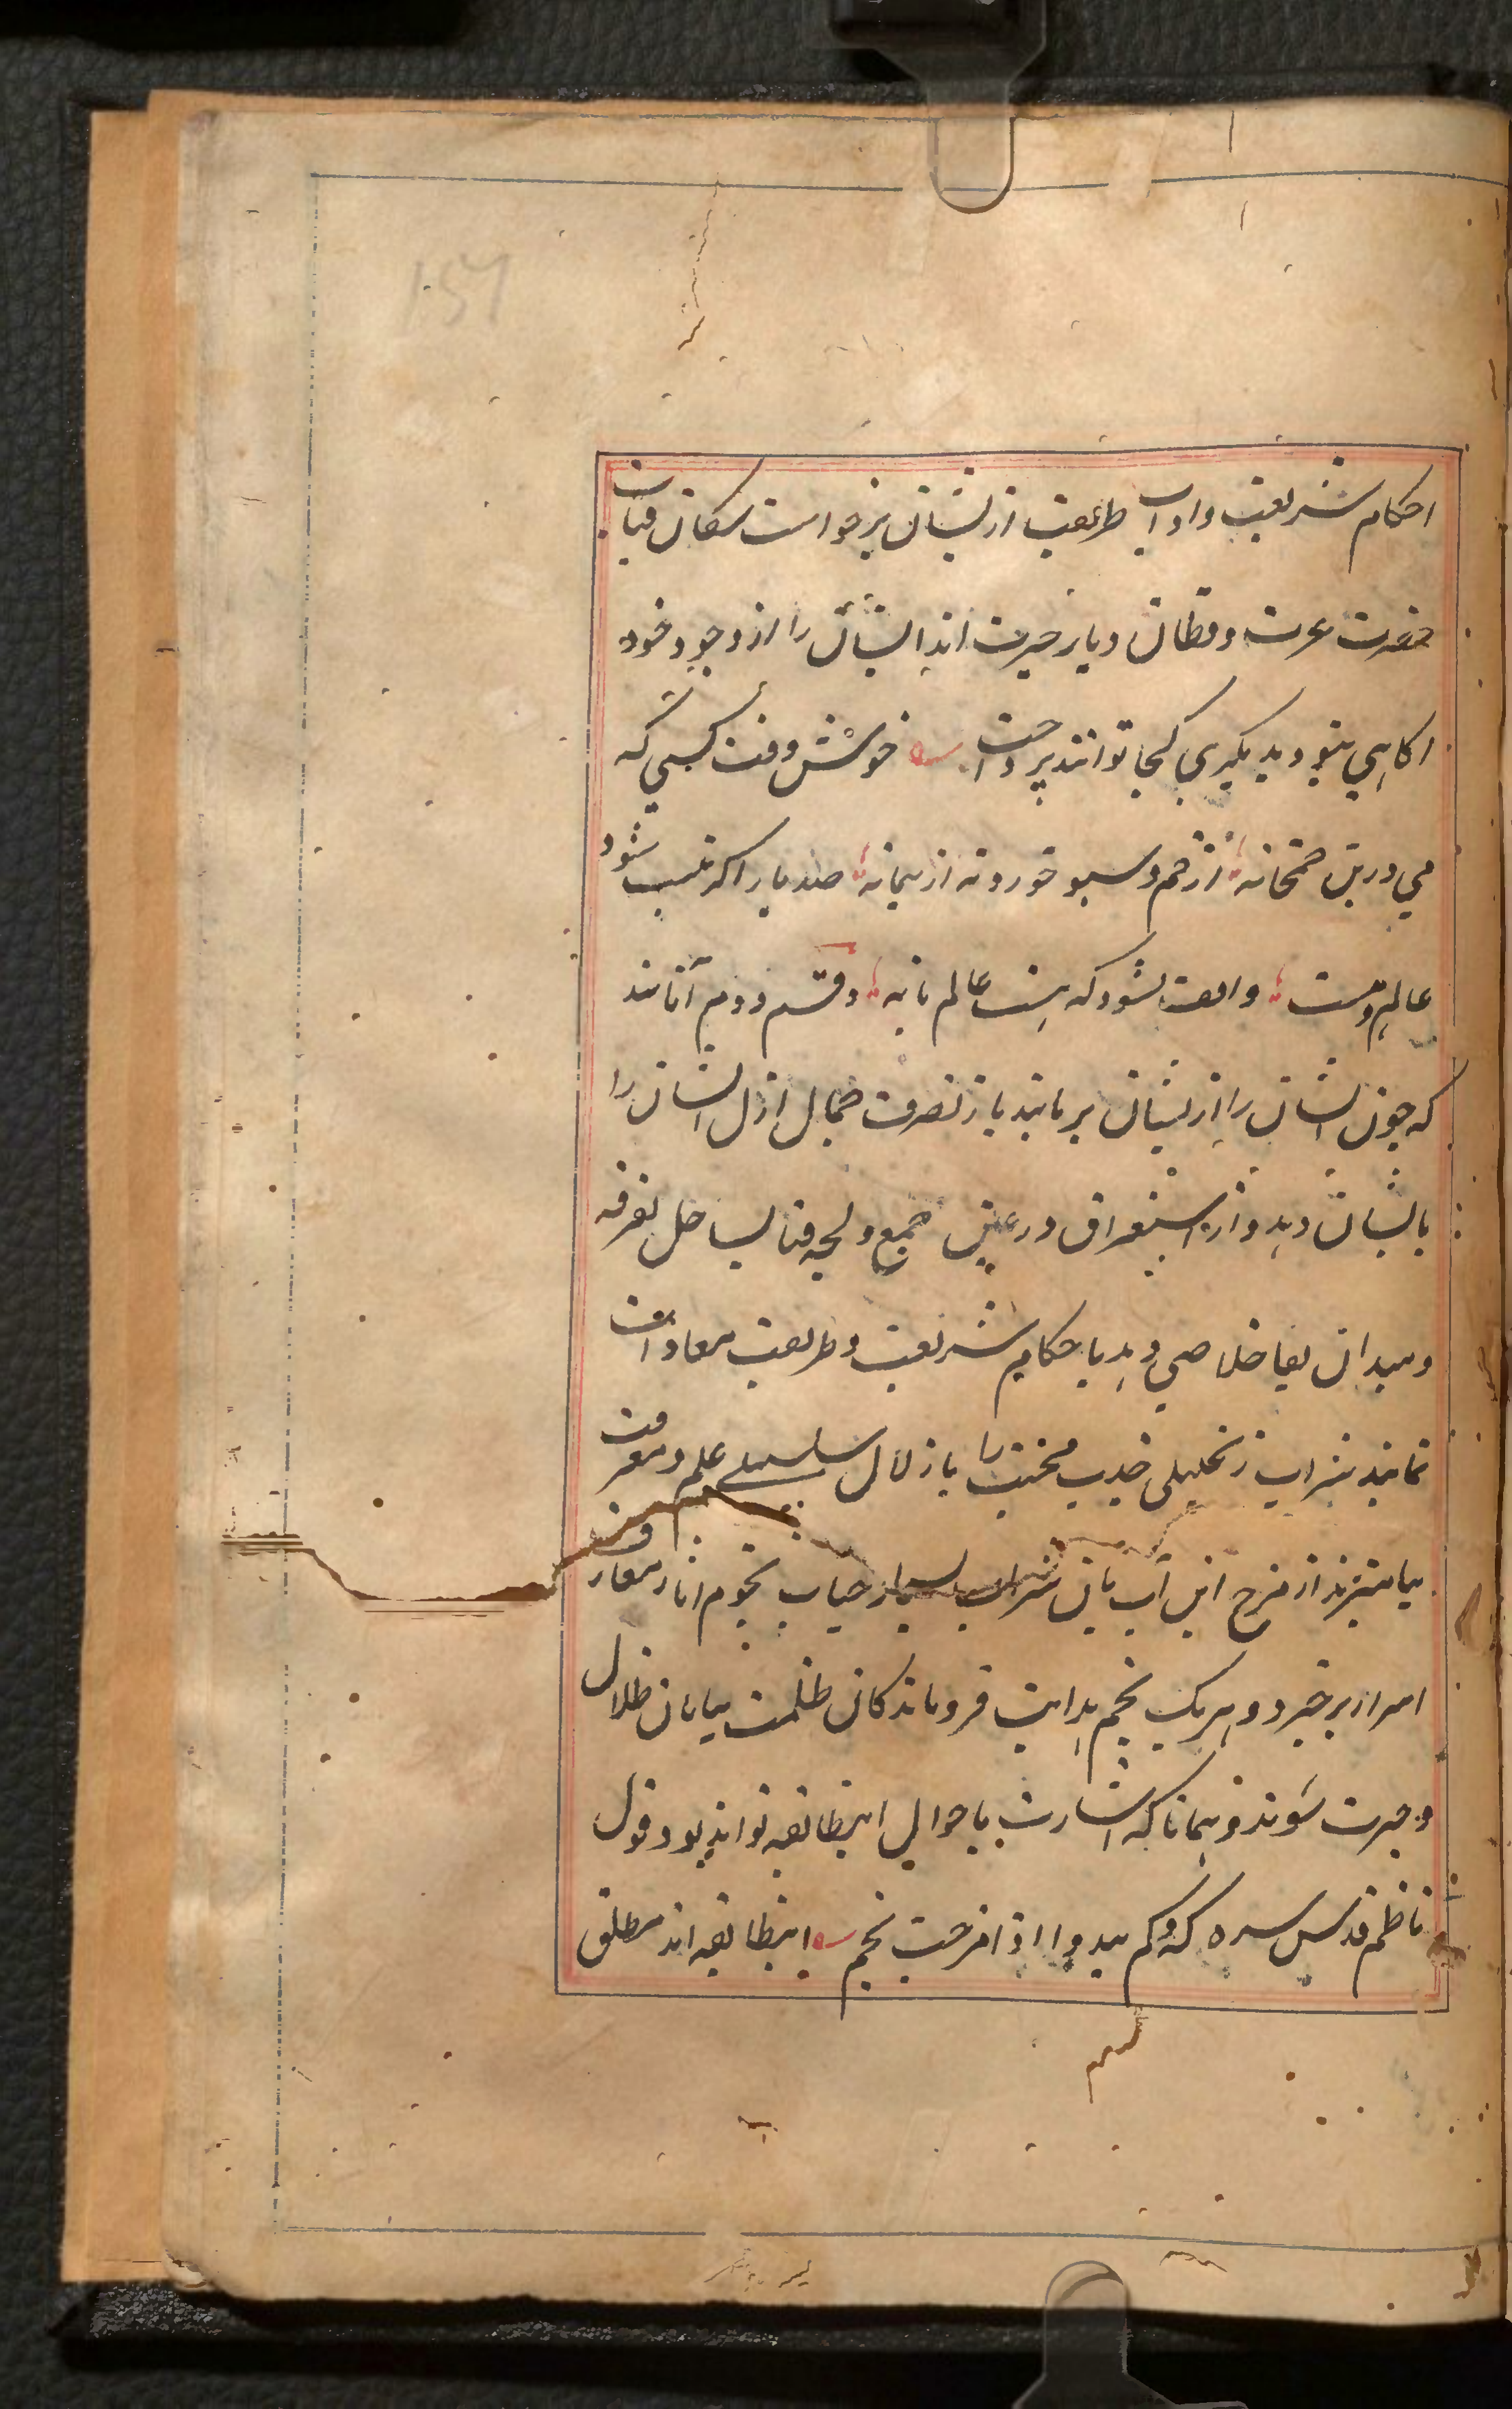 احکام شریعت و اداب طریقت از یشان برخواست سکان قباب
حضرت عزت و قطان دیار حیرت اند ایشان را از وجود خود
اکاهی نبود بدیکری کجا توانند پرداخت خوش وقت کسی که
می درین خمخانه از خم و سبو خورد نه از پیمانه صد بار اکر نیست شود
عالم و هست واقف نشود که هست عالم یا نه و قسم دوم آنانند
که چون ایشان را از یشان بر بایند باز تصرف جمال ازل ایشان را
بایشان دهد و از استغراق در عین جمع و لجه فنا بساحل تفرقه
و میدان بقا خلاصی دهد باحکام شریعت و طریقت معاودت
نمایند شراب زنجبیلی جذب محبت را با زلال سلسبیلی علم و معرفت
بیامیزند از مزج این آب باین شراب بسیار حباب نجوم اثار معارف
اسرار برخیزد و هریک نجم هدایت فروماندکان ظلمت بیابان ظلال
و حیرت شوند و همانا که اشارت باحوال اینطایفه تواند بود قول
ناظم قدس سره که و کم یبدوا اذا مزجت نجم اینطایفه اند مطلق